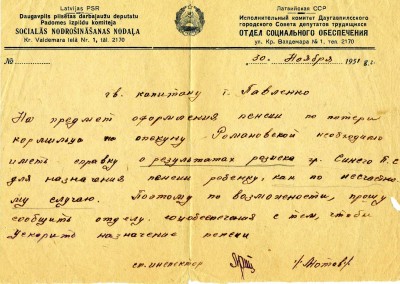 Latvijas PSR
Daugavpils pilsētas darbaļaužu deputatu
Padomes izpildu komiteja
SOCIALĀS NODROŠINĀŠANAS NODAĻA
Kr. Valdemara ielā Nr. 1, tāl. 2170
Латвийская ССР
Исполнительный комитет Даугавпилсского
городского Совета депутатов трудящихся
ОТДЕЛ СОЦИАЛЬНОГО ОБЕСПЕЧЕНИЯ
ул. Кр. Валдемара № 1, тел. 2170
№
30 Ноября 1951 г.
гв. капитану т. Павленко
На предмет оформления пенсии по потери
кормильца на опекуну Романовской необходимо
иметь справку о результатах розиска гр. Синего
для назначения пенсии ребенку, как по несчастно-
му случаю. Поэтому по возможности, прошу
сообщить отделу соцобеспечения с тем, чтобы
ускорить назначение пенсии
ст. инспектор